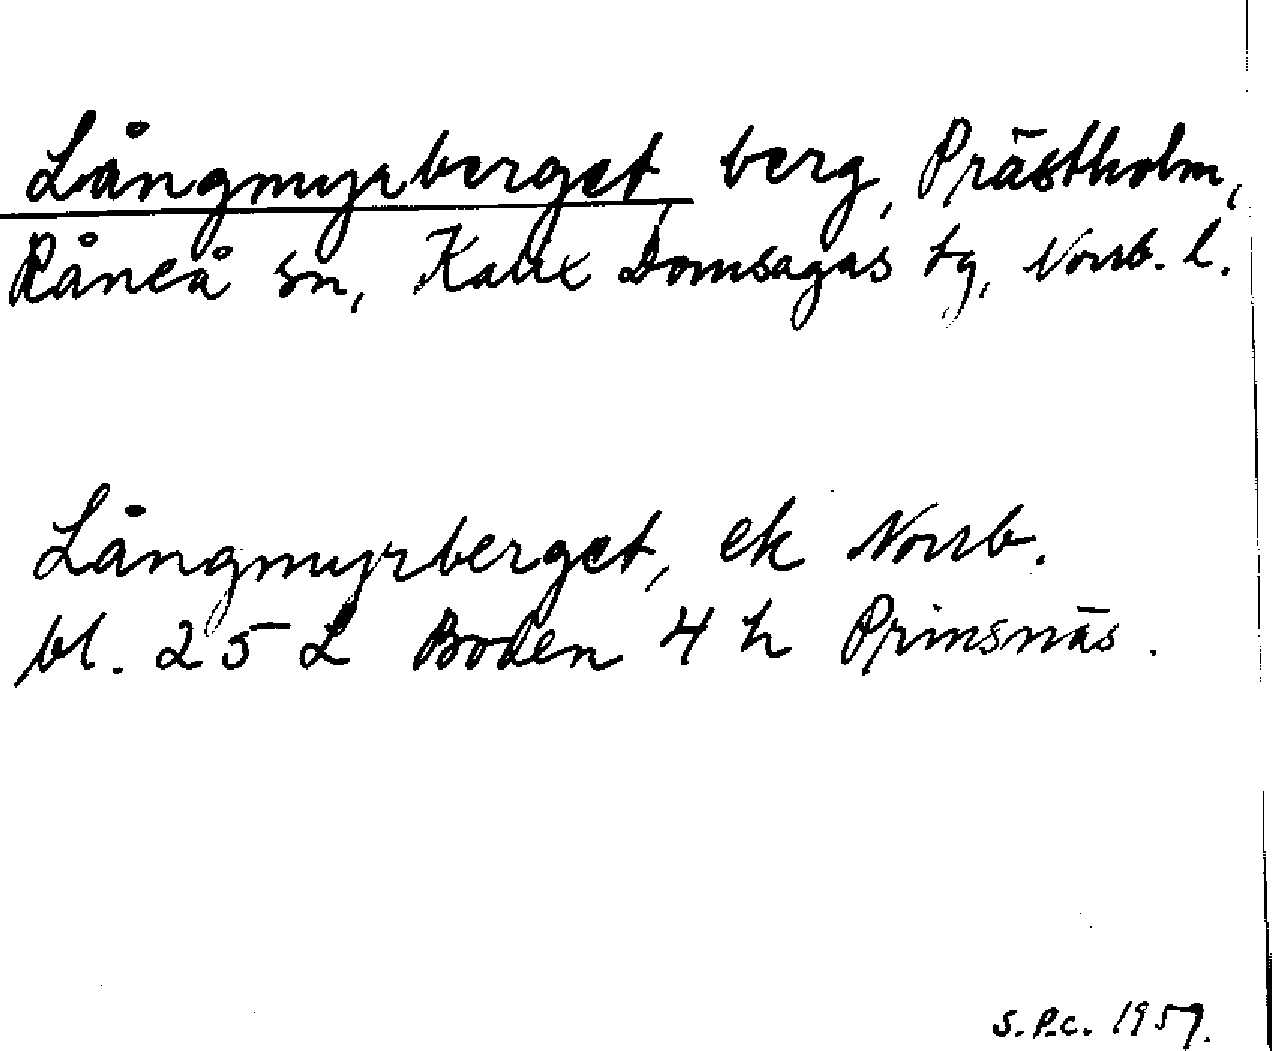 Långmyrberget, berg, Prästholm,
Råneå sn, Kalix Domsagas tg, Norrb. l.
Långmyrberget, ek Norrb.
bl. 25 L Boden 4 h Prinsnäs.
S.P.C. 1957.